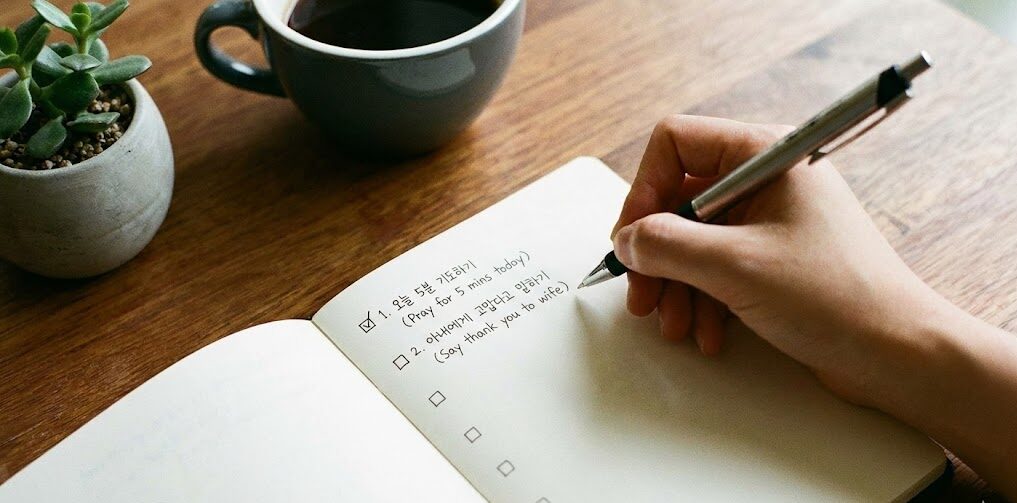 1. 오늘 5분 기도하기
(Pray for 5 mins today)
2. 아내에게 고맙다고 말하기
(Say thank you to wife)